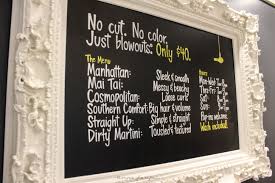 No cut. No color.
Just blowouts. Only $40.
The Menu
Manhattan: Sleek & smooth
Mai Tai: Messy & beachy
Cosmopolitan: Loose curls
Southern Comfort: Big hair & volume
Straight Up: Simple & straight
Dirty Martini: Tousled & textured
Hours